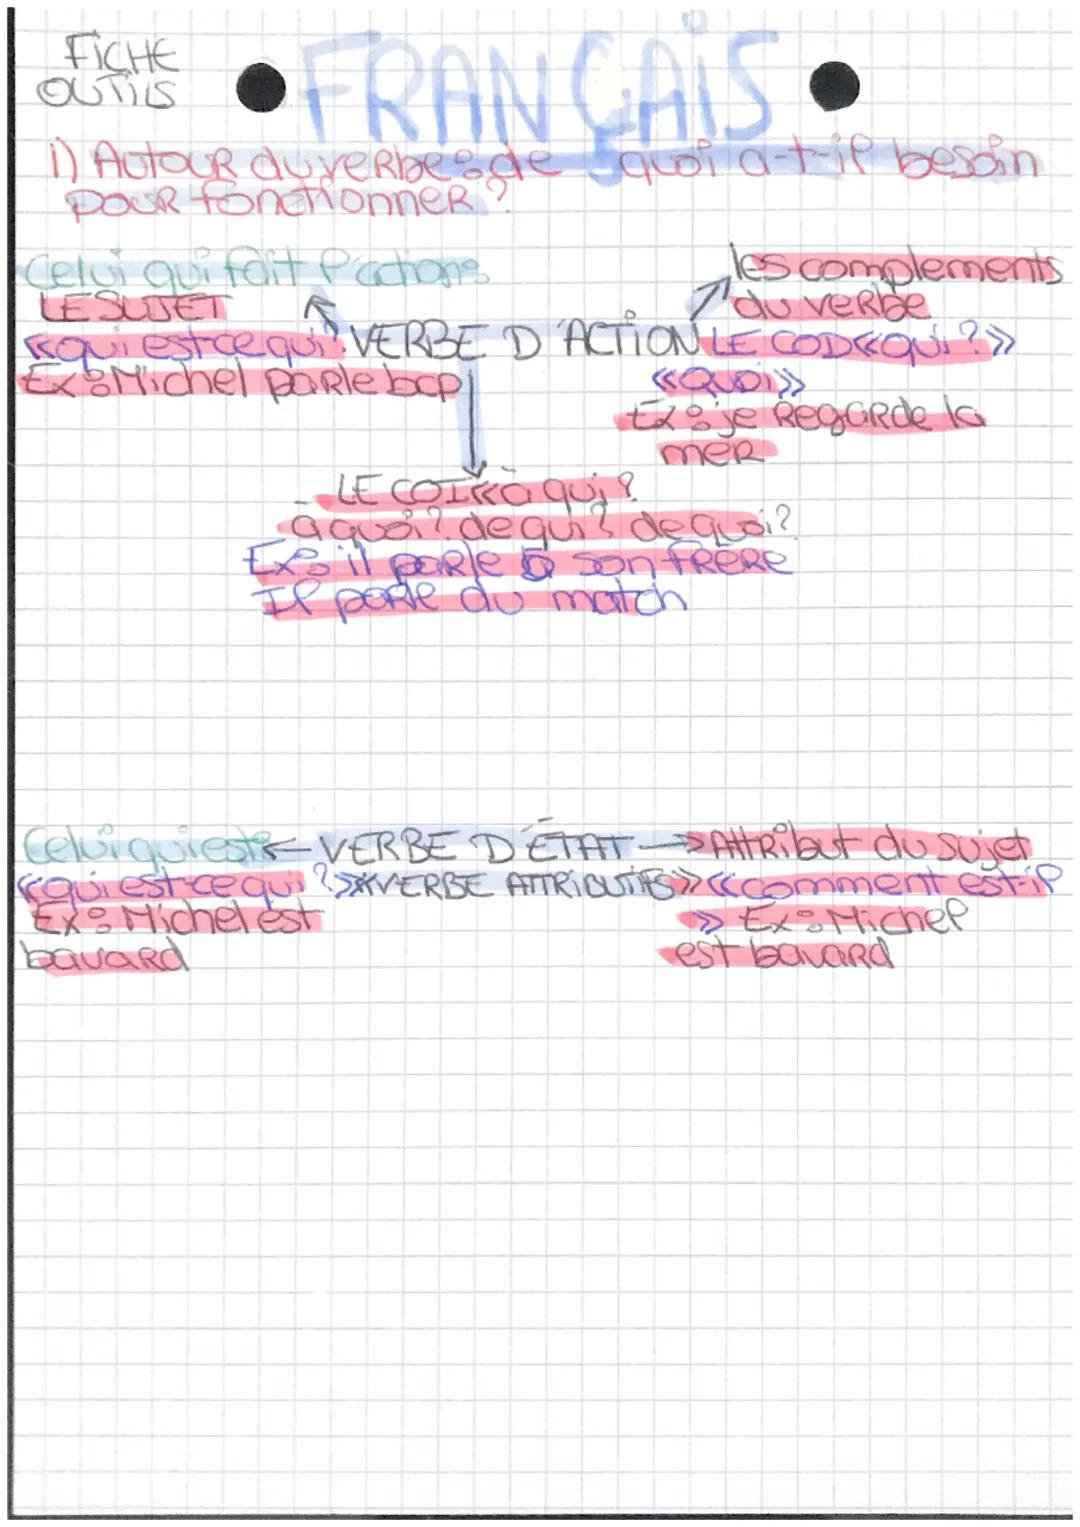 FICHE
OUTILS
FRANÇAIS
1) Autour du verbe : de quoi a-t-il besoin
pour fonctionner ?
Celui qui fait l'actions
LE SUJET
«qui est-ce qui?
Ex : Michel parle bcp
VERBE D'ACTION
les complements
du verbe
LE COD «qui ?»
«Quoi»
Ex : je regarde la
mer
LE COI «à qui ?
à quoi ? de qui ? de quoi ?
Ex : il parle à son frère
Il parle du match
Celui qui est ← VERBE D'ÉTAT → Attribut du sujet
«qui est-ce qui ?» «VERBE ATTRIBUTIFS» «comment est-il
Ex : Michel est
bavard
» Ex : Michel
est bavard